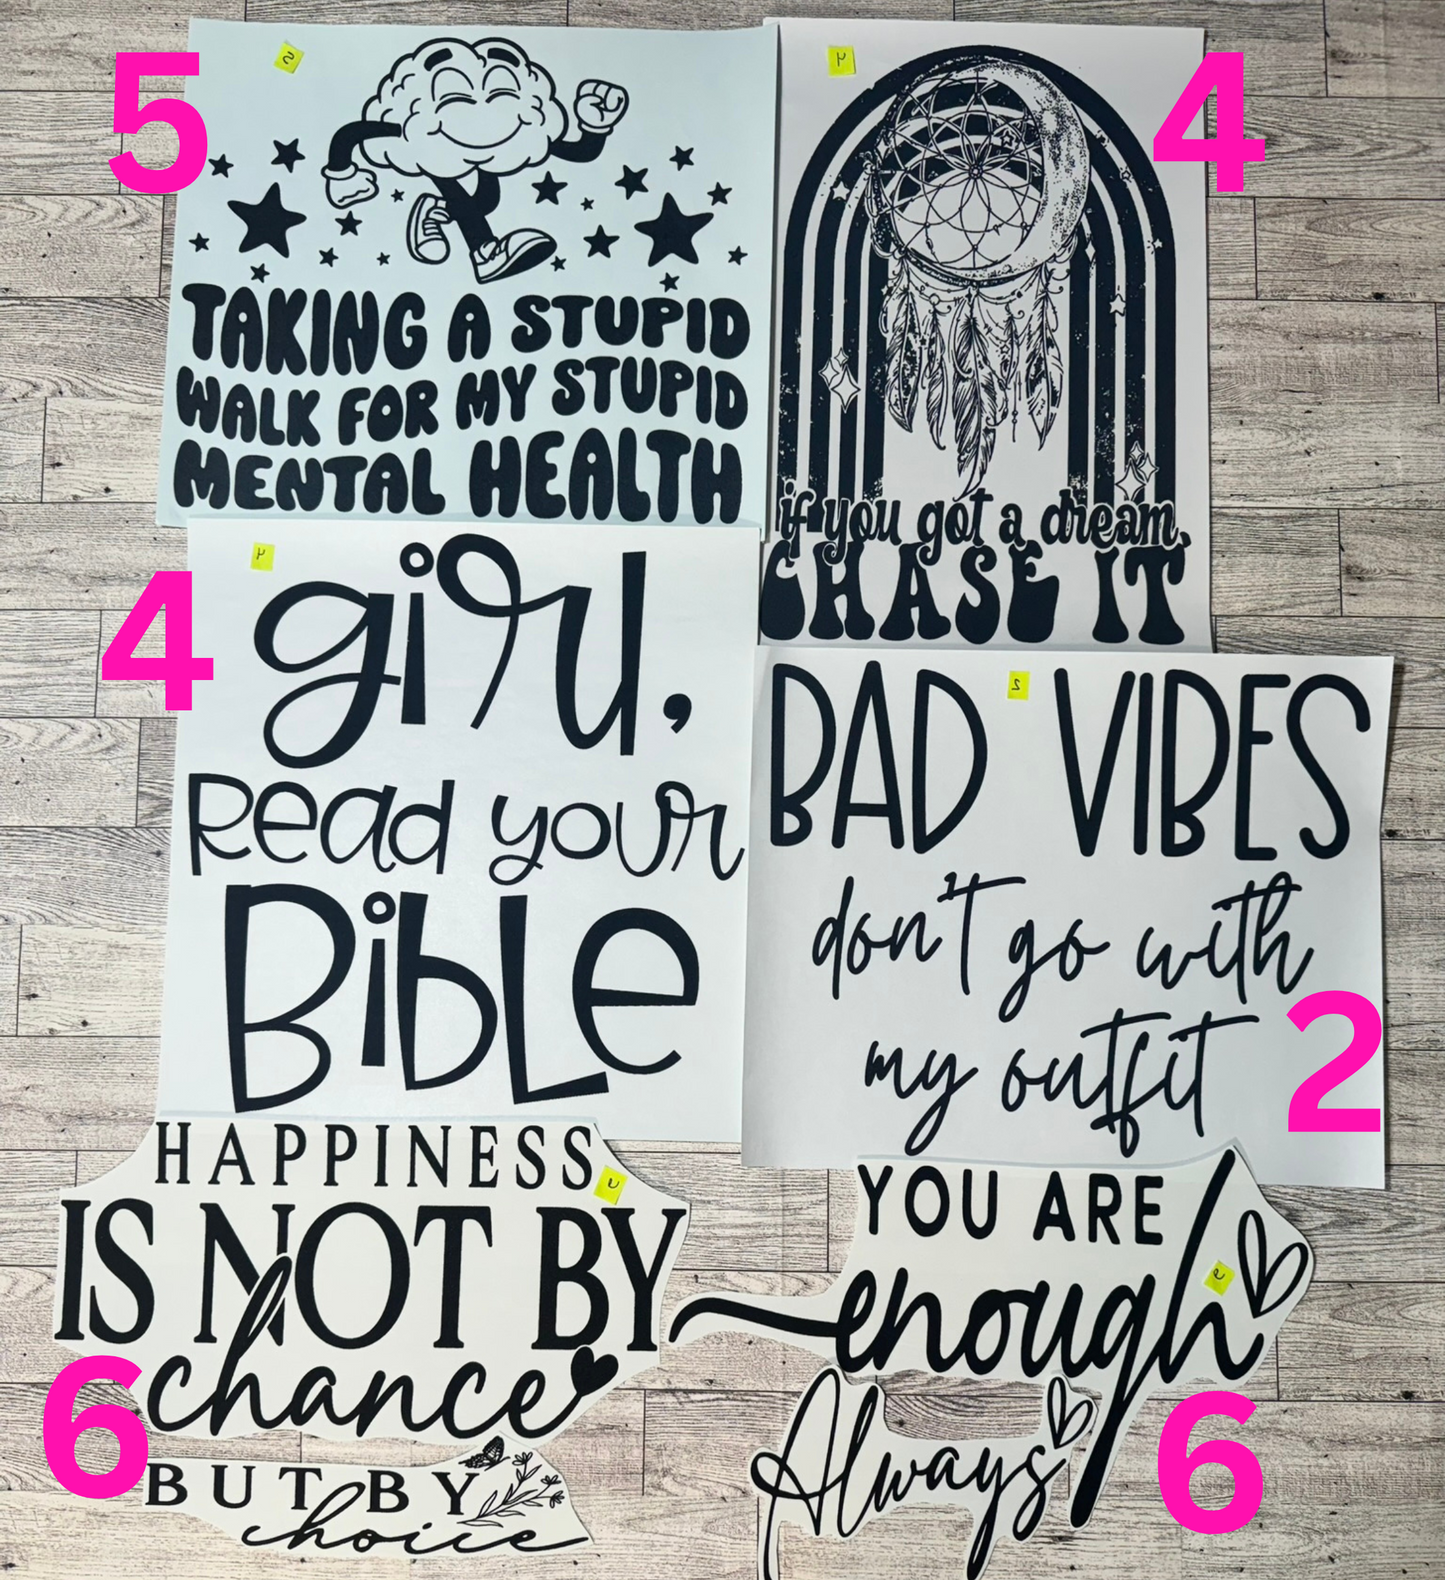 5
TAKING A STUPID
WALK FOR MY STUPID
MENTAL HEALTH
4
if you got a dream,
CHASE IT
4
girl,
Read your
Bible
2
BAD VIBES
don't go with
my outfit
2
HAPPINESS
IS NOT BY
chance
BUT BY
choice
6
YOU ARE
enough
Always
6